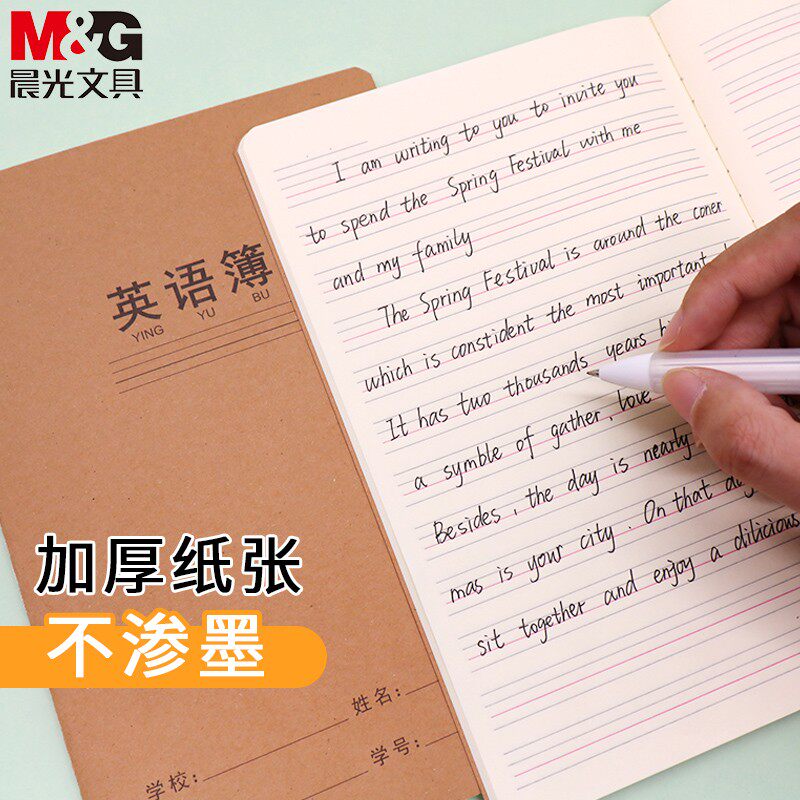 M&G
晨光文具
英语簿
YING YU BU
I am writing to you to invite you
to spend the Spring Festival with me
and my family
The Spring Festival is around the coner
which is constident the most important
It has two thousands years
a symble of gather, love
Besides, the day is nearly
mas is your city. On that
sit together and enjoy a dilicious
加厚纸张
不渗墨
姓名:
学号:
学校: